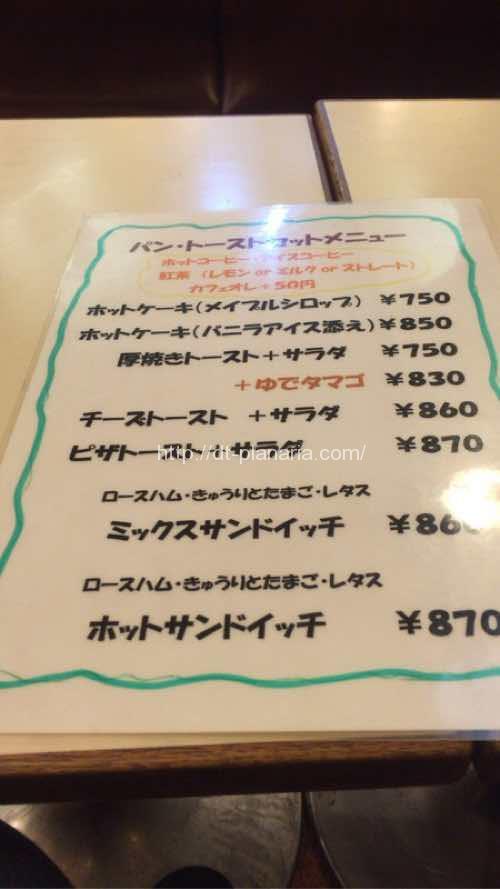 パン・トーストセットメニュー
ホットコーヒー・アイスコーヒー
紅茶 (レモン or ミルク or ストレート)
カフェオレ+50円
ホットケーキ(メイプルシロップ) ¥750
ホットケーキ(バニラアイス添え) ¥850
厚焼きトースト+サラダ ¥750
+ゆでタマゴ ¥830
チーズトースト +サラダ ¥860
ピザトースト+サラダ ¥870
http://dt-planaria.com/
ロースハム・きゅうりとたまご・レタス
ミックスサンドイッチ ¥860
ロースハム・きゅうりとたまご・レタス
ホットサンドイッチ ¥870